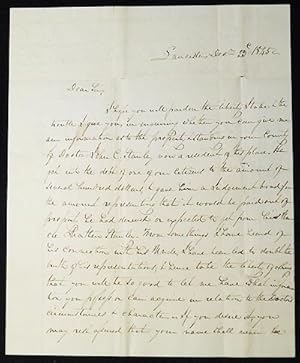 Lancaster, Decr 22d 1845
Dear Sir,
I hope you will pardon the liberty I take & the
trouble I give you, in inquiring whether you can give me
any information as to the present in your County
of Doctor John C. now a resident of this place. He
got into the debt of one of our citizens to the amount of
several hundred dollars & gave him a Judgment bond for
the amount representing that it would be paid out of
property he had derived or expected to get from his Uncle
From some things I have heard of
his connection with his Uncle, I have been led to doubt the
truth of his representations, & hence take the liberty of asking
that you will be so good to let me have what informa-
tion you possess or can acquire in relation to the Doctor's
circumstances & character & if you desire it you
may rest assured that your name shall never be